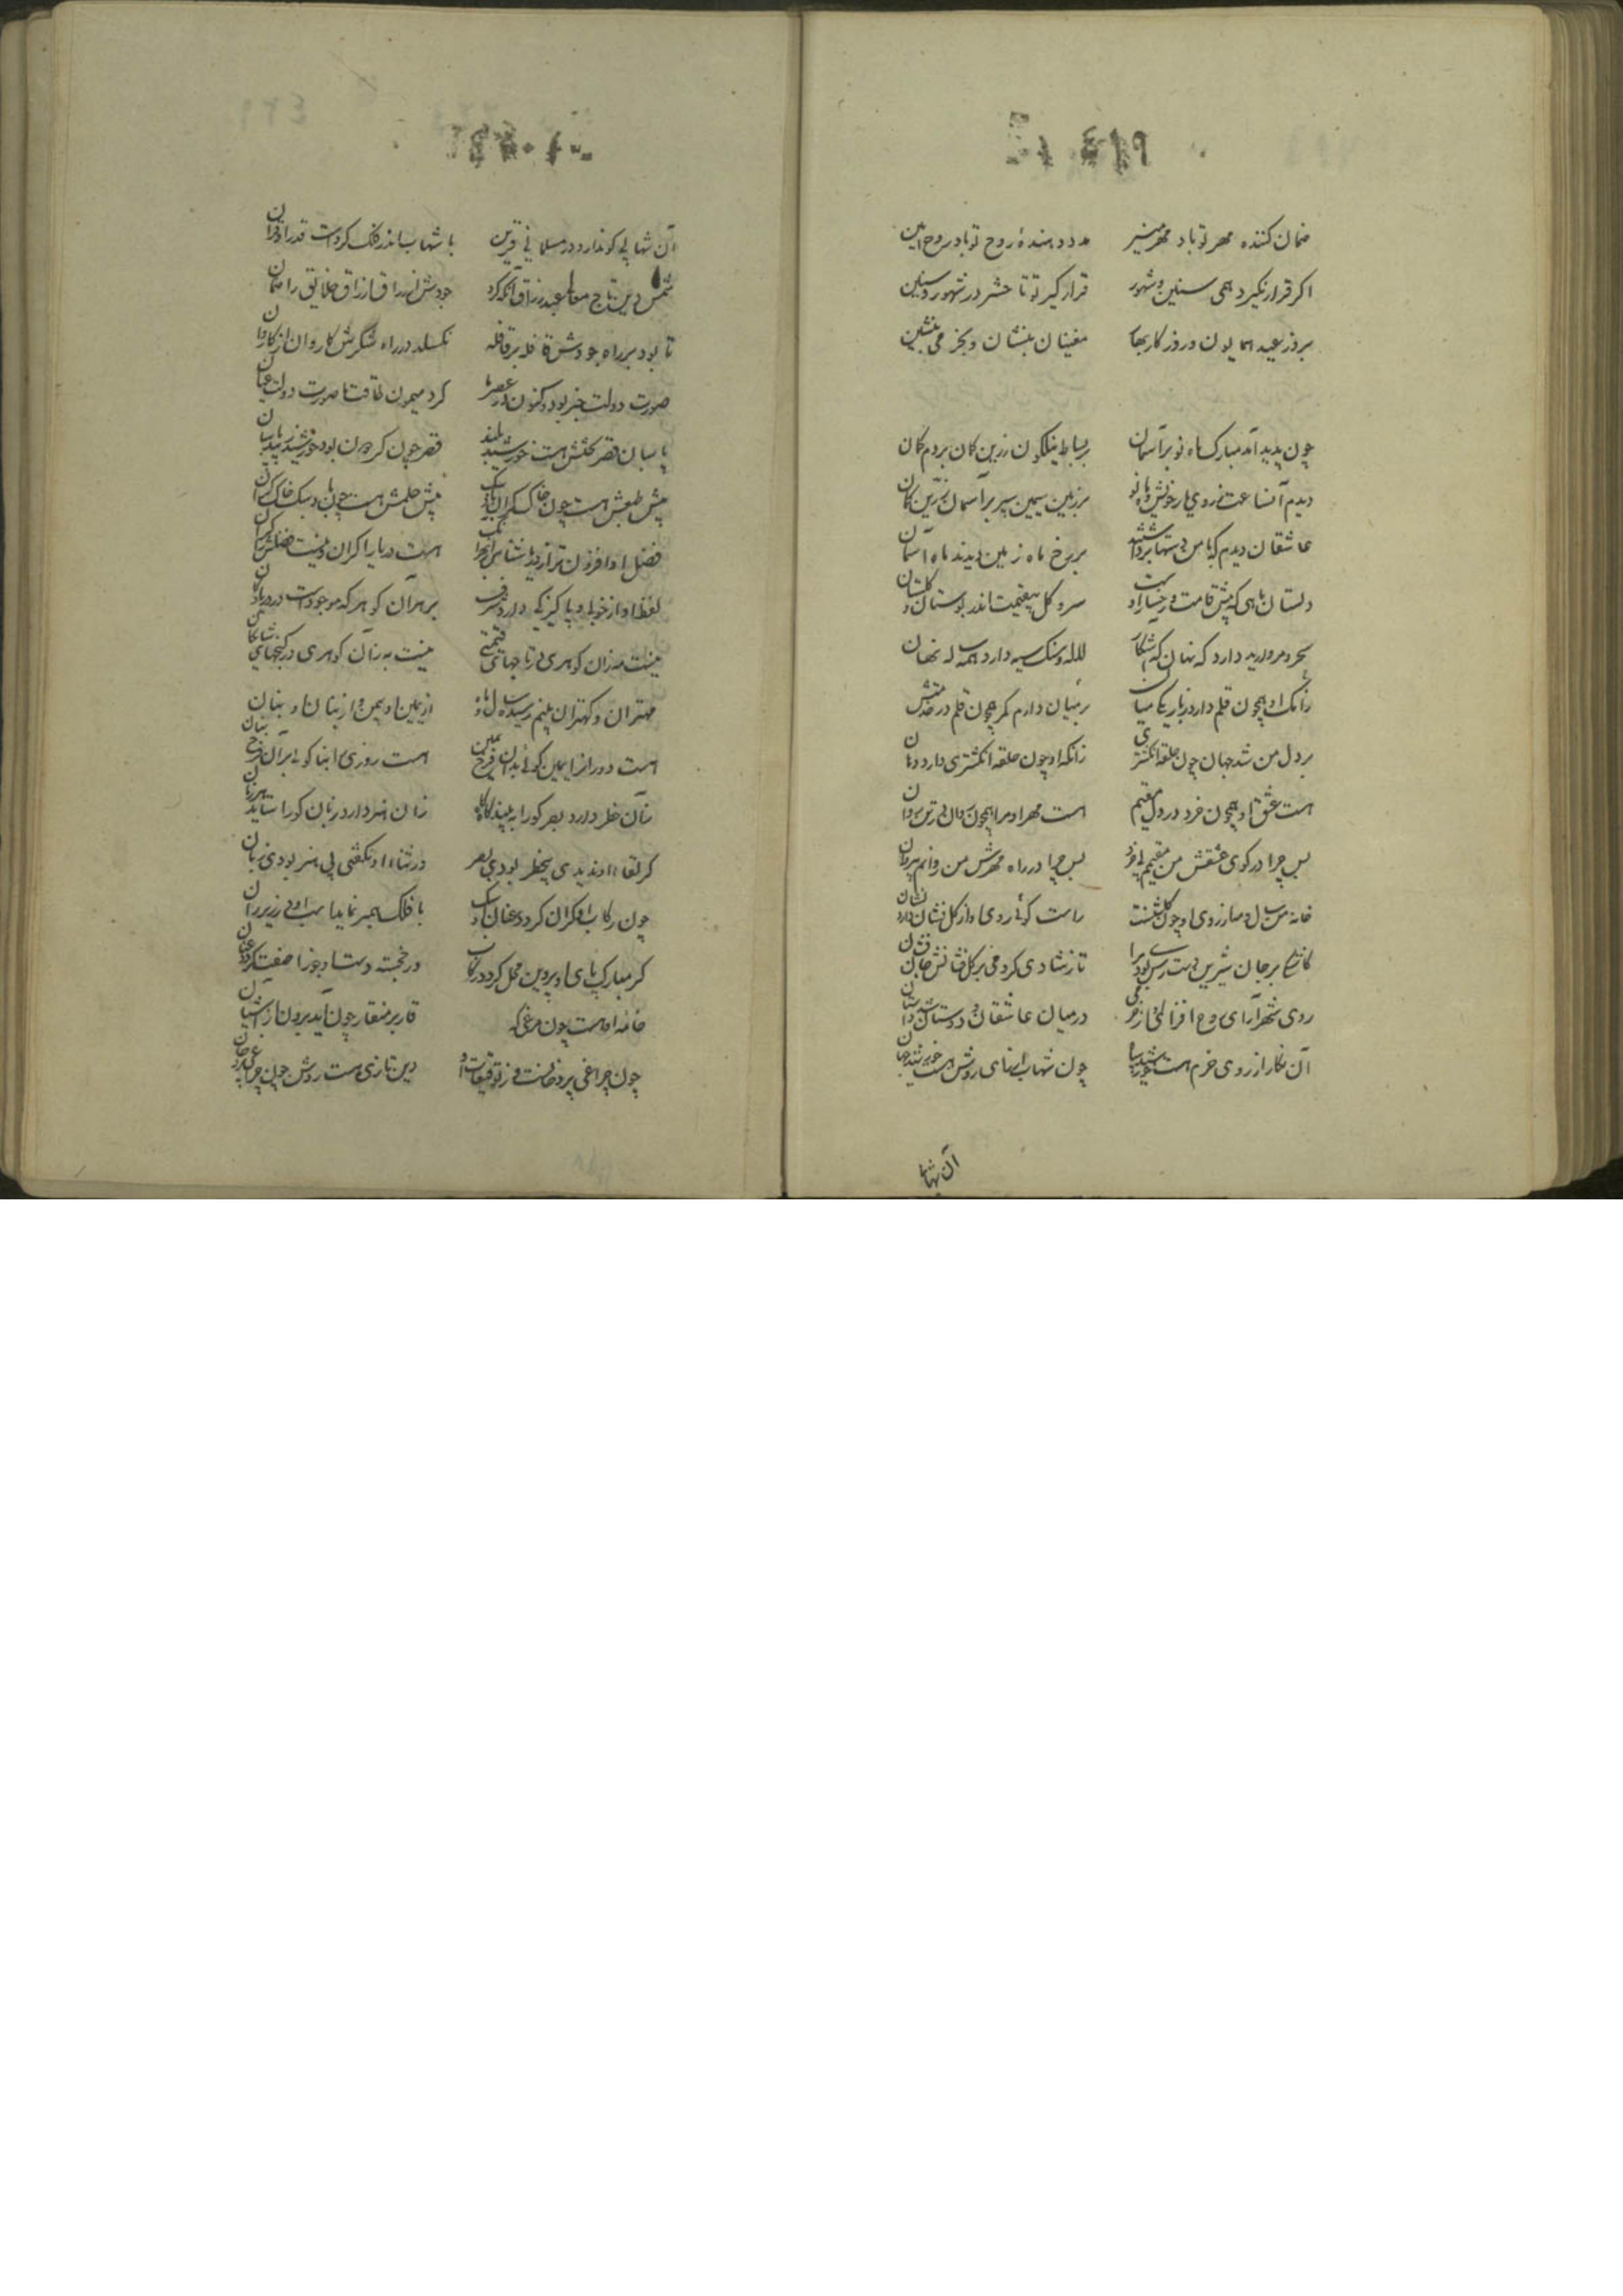 ضمان کننده مهر تو باد مهر منیر مدد دهندۀ روح تو باد روح امین
اکر قرار نکیرد همی سنین و شهور قرار کیر تو تا حشر در شهور و سنین
بروز عید همایون و روزکار بهار مغنیان بنشان و بخرمی بنشین
چون پدید آمد مبارک ماه نو بر آسمان بر بساط نیلکون زرین کمان بردم کمان
دیدم آنساعت ز روی یار خویش و ماه نو بر زمین سیمین سپر بر آسمان زرین کمان
عاشقان دیدم که با من دستها برداشتند بر رخ ماه زمین دیدند ماه آسمان
دلستان ماهی که پیش قامت و رخسار او سرو و کل بیقیمت اندر بوستان و کلستان
لاله و مشک سیه دارد همه له نهان
زانک او همچون قلم دارد ز باریکی میان بر میان دارم کمر همچون قلم در خدمتش
بر دل من شد جهان چون حلقه انکشتری زانکه او چون حلقه انکشتری دارد دهان
هست عشق او همچون خرد در دل مقیم هست مهر او مرا همچون روان در تن روان
پس چرا در کوی عشقش من مقیمم بی خرد پس چرا در راه مهرش من روانم بی روان
خانه من سال و ماه از روی او چون کلشنست راست کوئی روی او از کل نشان دارد نشان
کاشکی بر جان شیرین دسترس بودی مرا تا ز شادی کردمی بر کل فشانش جان فشان
روی شهر آرای روح افزای در میان عاشقان و دوستان شد داستان
آن نکار از روی خرم هست خورشید سپاه چون شهاب از رای روشن هست خورشید جهان
آن شها
آن شهابی کو ندارد در مسلمانی قرین با شهاب اندر فلک کردست قدر او قران
شمس دین تاج معالی عبد رزاق آنکه کرد جودش ارزاق خلایق را ضمان
تا بود بر راه جودش قافله بر قافله نکسلد در راه شکرش کاروان از کاروان
صورت دولت خبر بود و کنون در عصر ما کرد میمون طلعتش صورت دولت عیان
پاسبان قصر بختش هست خورشید بلند قصر چون کردون بود خورشید زیبد پاسبان
پیش طبعش هست چون خاک کران باد سبک پیش حلمش هست چون باد سبک خاک کران
هست دریا را کران و نیست فضلش را کران
لفظ او از خوبی و پاکیزکی دارد شرف بر هر آن کوهر که موجودست در دریا و کان
نیست به زان کوهری در تاجهای قیمتی نیست به زان کوهری در کنجهای شایکان
مهتران و کهتران بینم رسیده سال و ماه از یمین او بیمن و از بنان او بنان
هست روزی را بنا کوئی بر آن فرخ بنان
زان خطر دارد بصر کو را به بیند کاه کاه زان هنر دارد زبان کو را ستاید هر زمان
کر لقای او ندیدی بیخطر بودی بصر در ثنای او نکفتی بی هنر بودی زبان
چون رکاب او کران کردد عنان او سبک با فلک همبر نماید اسب او در زیر ران
کر مبارک پای او پروین محل کردد رکاب ور خجسته دست او جوزا صفت کردد عنان
خامه او هست چون مرغی که قار بر منقار چون آید برون از آشیان
چون چراغی پر دخانست و ز توقیعات او دین تازی هست روشن چون چراغ بی دخان